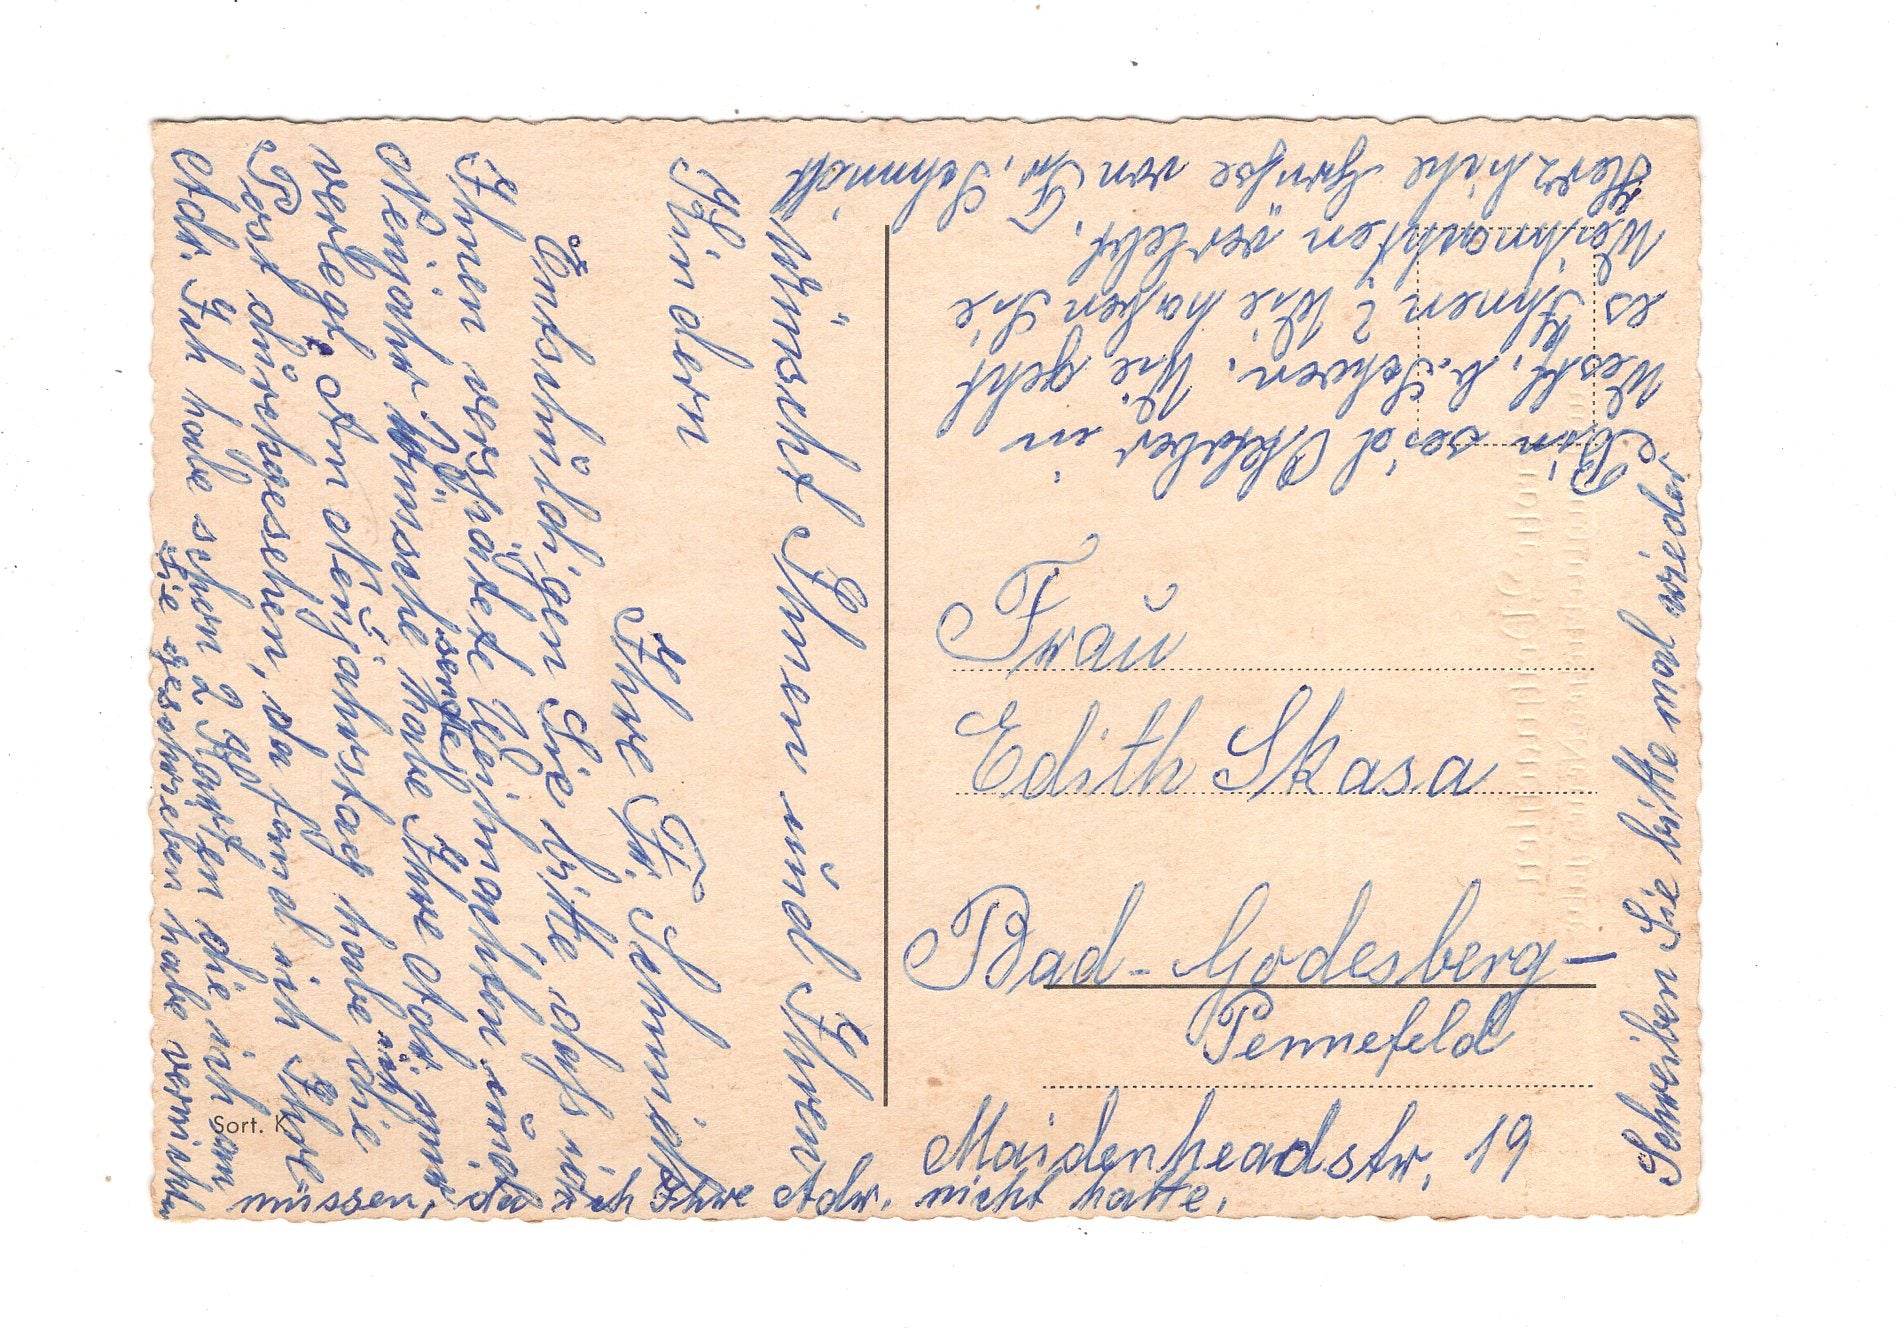 wünscht Ihnen und Ihren
Kindern
Ihre Fr. Schmidt
Entschuldigen Sie bitte, dass ich
Ihnen verspätete Weihnachten und
Neujahr Wünsche sende
habe Ihre Adr. gut
verlegt. Am Neujahrstag habe ich die
Post durchgesehen, da fand ich Ihre
Adr. Ich habe schon 2 Karten die ich an
Sie geschrieben habe vernichten
müssen, da ich Ihre Adr. nicht hatte.
Bin seid Oktober in
Westf. b. Schwen. Wie geht
es Ihnen? Wie haben Sie
Weihnachten verlebt.
Herzliche Grüsse von Fr. Schmidt.
Frau
Edith Skasa
Bad-Godesberg-
Pennefeld
Maidenheadstr. 19
Schreiben Sie bitte mal wieder
Sort. K